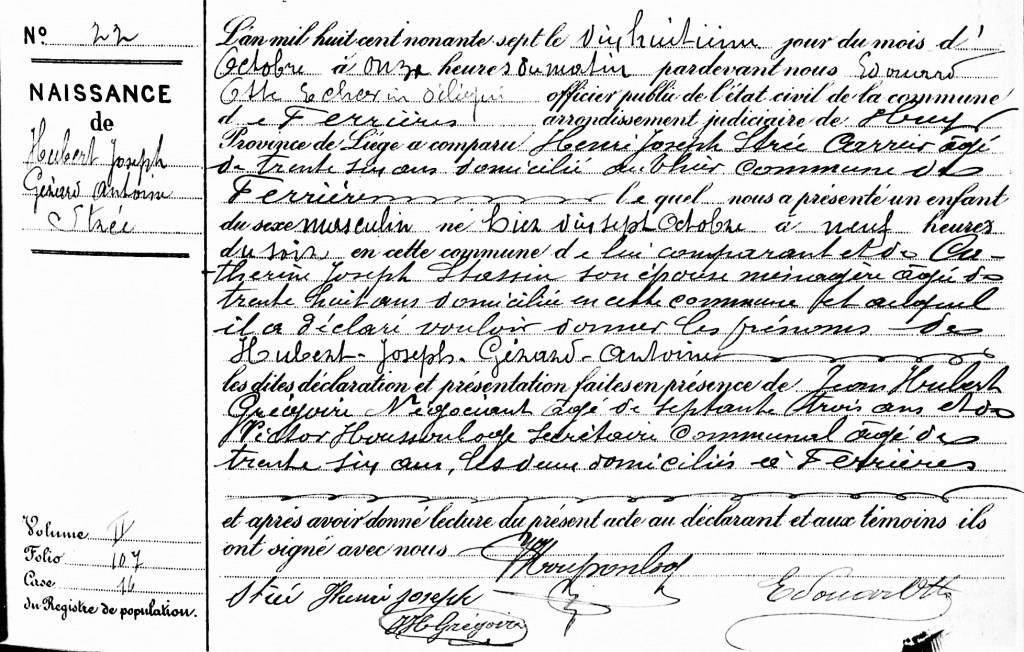 N° 22
NAISSANCE
de
Hubert Joseph
Gérard Antoine
Strée
Volume IV
Folio 107
Case 16
du Registre de population.
L'an mil huit cent nonante sept le dix huitième jour du mois d'
Octobre à onze heures du matin pardevant nous Edouard
Otte Echevin délégué officier public de l'état civil de la commune
de Ferrières arrondissement judiciaire de Huy
Province de Liége a comparu Henri Joseph Strée Carrier âgé
de trente six ans domicilié au Thier commune de
Ferrières lequel nous a présenté un enfant
du sexe masculin né hier dix sept Octobre à neuf heures
du soir en cette commune de lui comparant et de Ca-
therine Joseph Stassin son épouse ménagère âgée de
trente huit ans domiciliée en cette commune et auquel
il a déclaré vouloir donner les prénoms de
Hubert-Joseph-Gérard-Antoine
les dites déclaration et présentation faites en présence de Jean Hubert
Grégoire Négociant âgé de septante trois ans et de
Victor Houssonloge secrétaire communal âgé de
trente six ans, les deux domiciliés à Ferrières
et après avoir donné lecture du présent acte au déclarant et aux témoins ils
ont signé avec nous
Houssonloge
Strée Henri Joseph
Edouard Otte
JH Grégoire